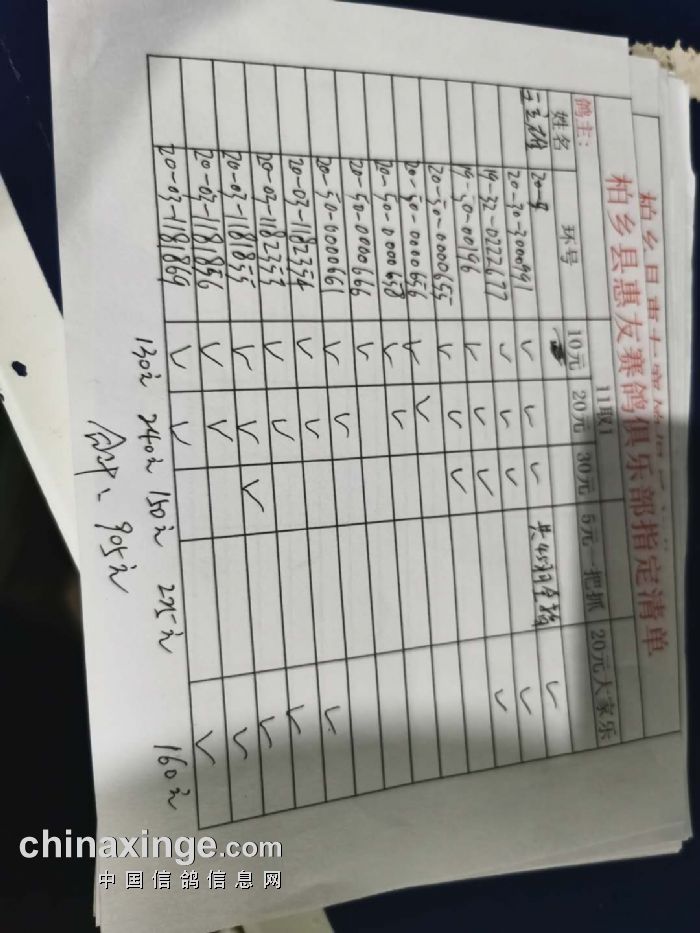 柏乡县惠友赛鸽俱乐部指定清单
鸽主:
11取1
姓名 环号 10元 20元 30元 5元一把抓 20元大家乐
20-9 共45羽全鸽 ✓
20-30-3000991 ✓ ✓ ✓ ✓
19-32-0222677 ✓ ✓ ✓ ✓
19-50-00196 ✓ ✓ ✓
20-50-0000655 ✓ ✓ ✓
20-50-0000656 ✓ ✓
20-50-0000658 ✓ ✓
20-50-0000666 ✓
20-50-0000661 ✓ ✓ ✓
20-03-1182354 ✓ ✓ ✓
20-03-1182353 ✓ ✓ ✓
20-03-1181855 ✓ ✓ ✓ ✓
20-03-1181856 ✓ ✓ ✓
20-03-1181869 ✓ ✓
130元 240元 150元 225元 160元
合计: 905元
chinaxinge.com
中国信鸽信息网